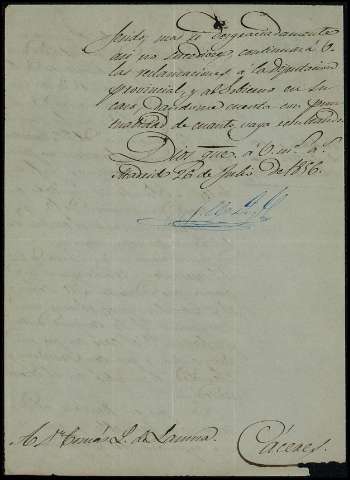 mas si desgraciadamente
asi no sucediere, continuará V.
las reclamaciones á la Diputacion
provincial, y al Gobierno en su
caso, dandome cuenta con pun-
tualidad de cuanto vaya
Dios gue. á V. ms. as.
Madrid 26 de Julio de 1856.
A Dn. Tomás L. de
Cáceres.